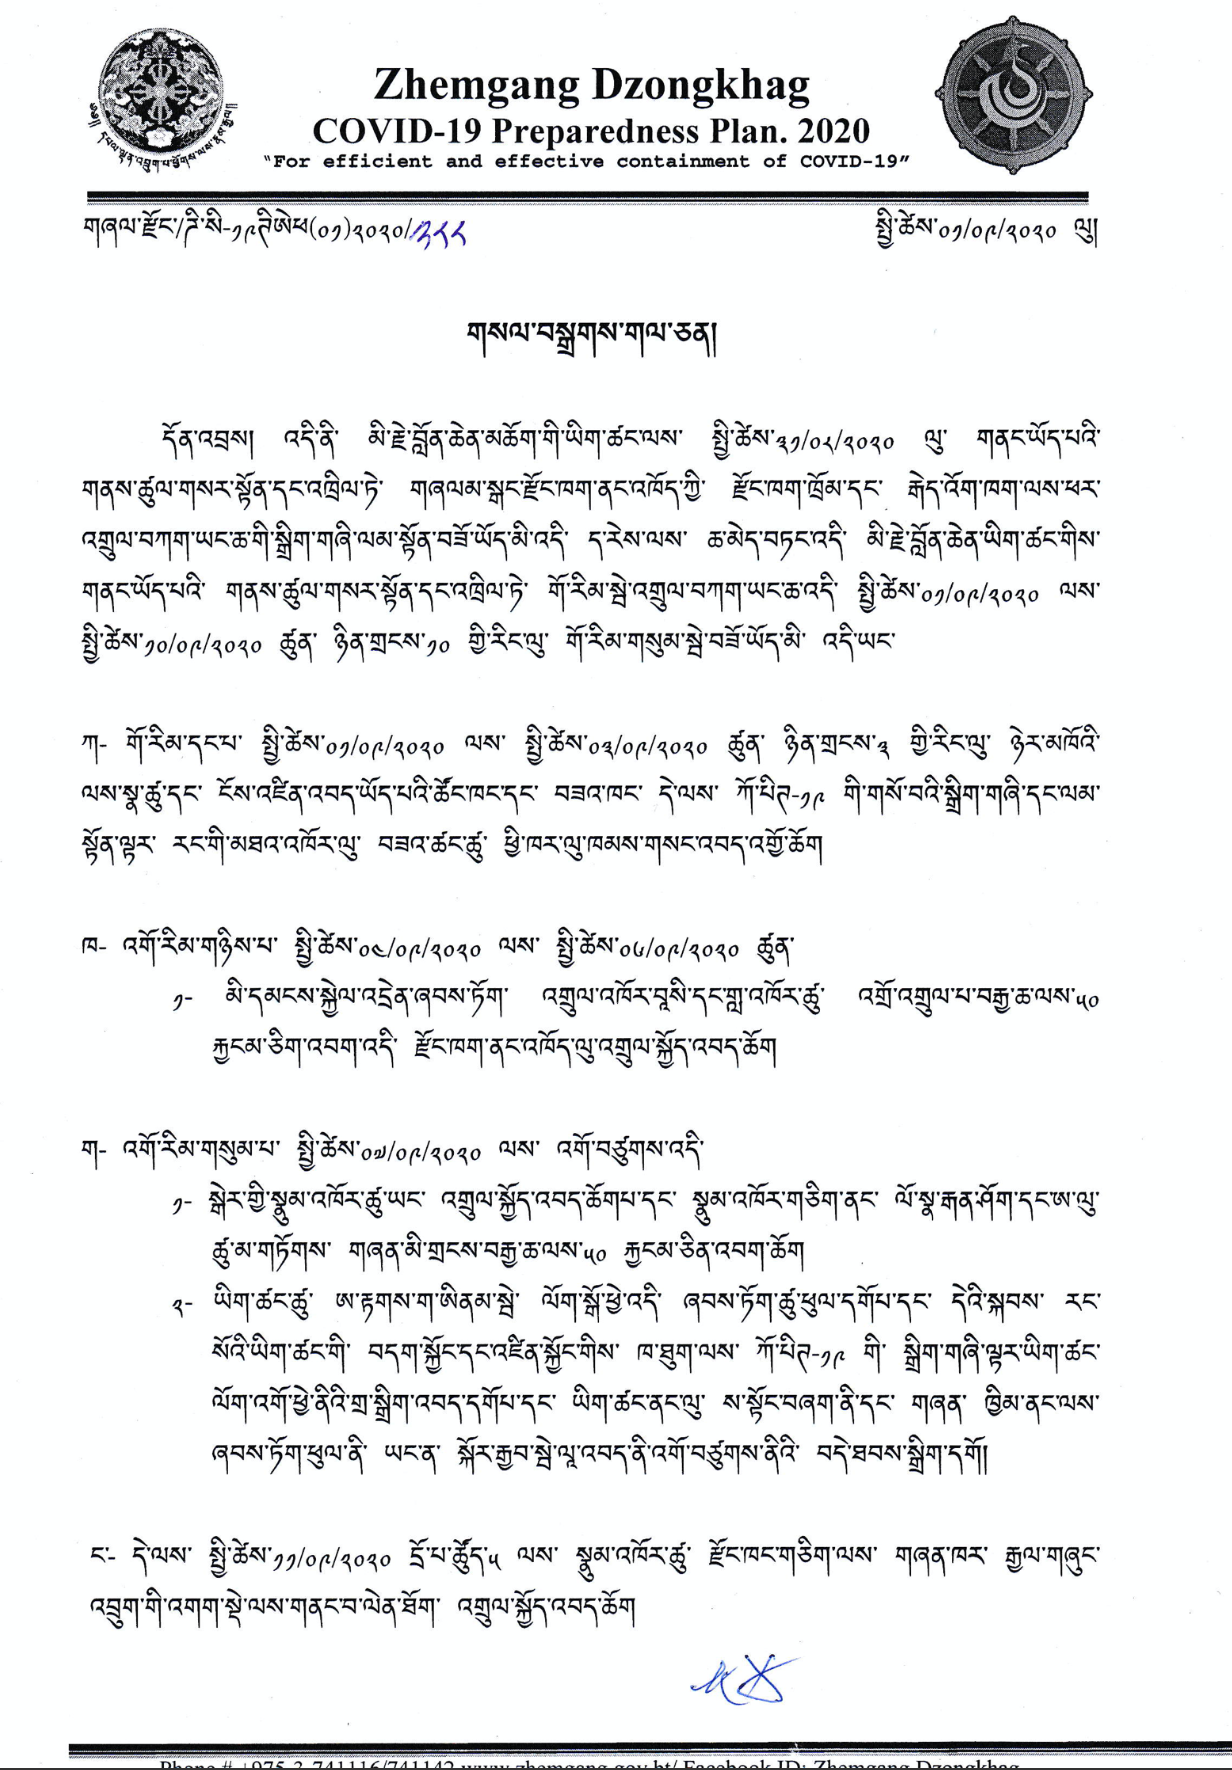 Zhemgang Dzongkhag
COVID-19 Preparedness Plan. 2020
"For efficient and effective containment of COVID-19"
གཞལ་རྫོང་/ཌི་སི-༡༩ཊིཨེཕ(༠༡)༢༠༢༠/༢༨༨ སྤྱི་ཚེས་༠༡/༠༩/༢༠༢༠ ལུ།
གསལ་བསྒྲགས་གལ་ཅན།
དོན་འབྲས། འདི་ནི་ མི་རྗེ་བློན་ཆེན་མཆོག་གི་ཡིག་ཚང་ལས་ སྤྱི་ཚེས་༣༡/༠༨/༢༠༢༠ ལུ་ གནང་ཡོད་པའི་
གནས་ཚུལ་གསར་སྟོན་དང་འཁྲིལ་ཏེ་ གཞལམ་སྒང་རྫོང་ཁག་ནང་འཁོད་ཀྱི་ རྫོང་ཁག་ཁྲོམ་དང་ རྒེད་འོག་ཁག་ལས་ཕར་
འགྲུལ་བཀག་ཡང་ཆ་གི་སྒྲིག་གཞི་ལམ་སྟོན་བཟོ་ཡོད་མི་འདི་ ད་རེས་ལས་ ཆ་མེད་བཏང་འདི་ མི་རྗེ་བློན་ཆེན་ཡིག་ཚང་གིས་
གནང་ཡོད་པའི་ གནས་ཚུལ་གསར་སྟོན་དང་འཁྲིལ་ཏེ་ གོ་རིམ་སྦེ་འགྲུལ་བཀག་ཡང་ཆ་འདི་ སྤྱི་ཚེས་༠༡/༠༩/༢༠༢༠ ལས་
སྤྱི་ཚེས་༡༠/༠༩/༢༠༢༠ ཚུན་ ཉིན་གྲངས་༡༠ གྱི་རིང་ལུ་ གོ་རིམ་གསུམ་སྦེ་བཟོ་ཡོད་མི་ འདི་ཡང་
ཀ- གོ་རིམ་དང་པ་ སྤྱི་ཚེས་༠༡/༠༩/༢༠༢༠ ལས་ སྤྱི་ཚེས་༠༣/༠༩/༢༠༢༠ ཚུན་ ཉིན་གྲངས་༣ གྱི་རིང་ལུ་ ཉེར་མཁོའི་
ལས་སྣ་ཚུ་དང་ ངོས་འཛིན་འབད་ཡོད་པའི་ཚོང་ཁང་དང་ བཟའ་ཁང་ དེ་ལས་ ཀོ་པིཊ-༡༩ གི་གསོ་བའི་སྒྲིག་གཞི་དང་ལམ་
སྟོན་ལྟར་ རང་གི་མཐའ་འཁོར་ལུ་ བཟའ་ཚང་ཚུ་ ཕྱི་ཁར་ལུ་ཁམས་གསང་འབད་འགྱོ་ཆོག
ཁ- འགོ་རིམ་གཉིས་པ་ སྤྱི་ཚེས་༠༤/༠༩/༢༠༢༠ ལས་ སྤྱི་ཚེས་༠༦/༠༩/༢༠༢༠ ཚུན་
༡- མི་དམངས་སྐྱེལ་འདྲེན་ཞབས་ཏོག་ འགྲུལ་འཁོར་བཱསི་དང་གླ་འཁོར་ཚུ་ འགྲོ་འགྲུལ་པ་བརྒྱ་ཆ་ལས་༥༠
རྐྱངམ་ཅིག་འབག་འདི་ རྫོང་ཁག་ནང་འཁོད་ལུ་འགྲུལ་སྐྱོད་འབད་ཆོག
ག- འགོ་རིམ་གསུམ་པ་ སྤྱི་ཚེས་༠༧/༠༩/༢༠༢༠ ལས་ འགོ་བཙུགས་འདི་
༡- སྒེར་གྱི་སྣུམ་འཁོར་ཚུ་ཡང་ འགྲུལ་སྐྱོད་འབད་ཆོགཔ་དང་ སྣུམ་འཁོར་གཅིག་ནང་ ལོ་སྣ་རྒན་ཤོག་དང་ཨ་ལུ་
ཚུ་མ་གཏོགས་ གཞན་མི་གྲངས་བརྒྱ་ཆ་ལས་༥༠ རྐྱངམ་ཅིན་འབག་ཆོག
༢- ཡིག་ཚང་ཚུ་ ཨ་རྟགས་ག་ཨིནམ་སྦེ་ ལོག་སྒོ་ཕྱེ་འདི་ ཞབས་ཏོག་ཚུ་ཕུལ་དགོཔ་དང་ དེའི་སྐབས་ རང་
སོའི་ཡིག་ཚང་གི་ བདག་སྐྱོང་དང་འཛིན་སྐྱོང་གིས་ ཁ་ཐུག་ལས་ ཀོ་པིཊ-༡༩ གི་ སྒྲིག་གཞི་ལྟར་ཡིག་ཚང་
ལོག་འགོ་ཕྱེ་ནིའི་གྲ་སྒྲིག་འབད་དགོཔ་དང་ ཡིག་ཚང་ནང་ལུ་ ས་སྟོང་བཞག་ནི་དང་ གཞན་ ཁྱིམ་ནང་ལས་
ཞབས་ཏོག་ཕུལ་ནི་ ཡང་ན་ སྐོར་རྒྱབ་སྦེ་ལཱ་འབད་ནི་འགོ་བཙུགས་ནིའི་ བདེ་ཐབས་སྒྲིག་དགོ།
ང་- དེ་ལས་ སྤྱི་ཚེས་༡༡/༠༩/༢༠༢༠ དྲོ་པ་ཚོུད་༥ ལས་ སྣུམ་འཁོར་ཚུ་ རྫོང་ཁང་གཅིག་ལས་ གཞན་ཁར་ རྒྱལ་གཞུང་
འབྲུག་གི་འགག་སྡེ་ལས་གནང་བ་ལེན་ཐོག་ འགྲུལ་སྐྱོད་འབད་ཆོག
Phone # +975-3-741116/741142 www.zhemgang.gov.bt/ Facebook ID: Zhemgang Dzongkhag